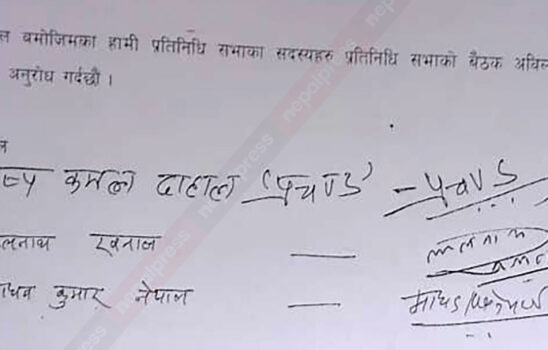 ल बमोजिमका हामी प्रतिनिधि सभाका सदस्यहरु प्रतिनिधि सभाको बैठक अविल
अनुरोध गर्दछौं ।
ल
ष्प कमल दाहाल 'प्रचण्ड' - प्रचण्ड
लनाथ खनाल —
ाधव कुमार नेपाल —
nepalpress
nepalpress
nepalpress